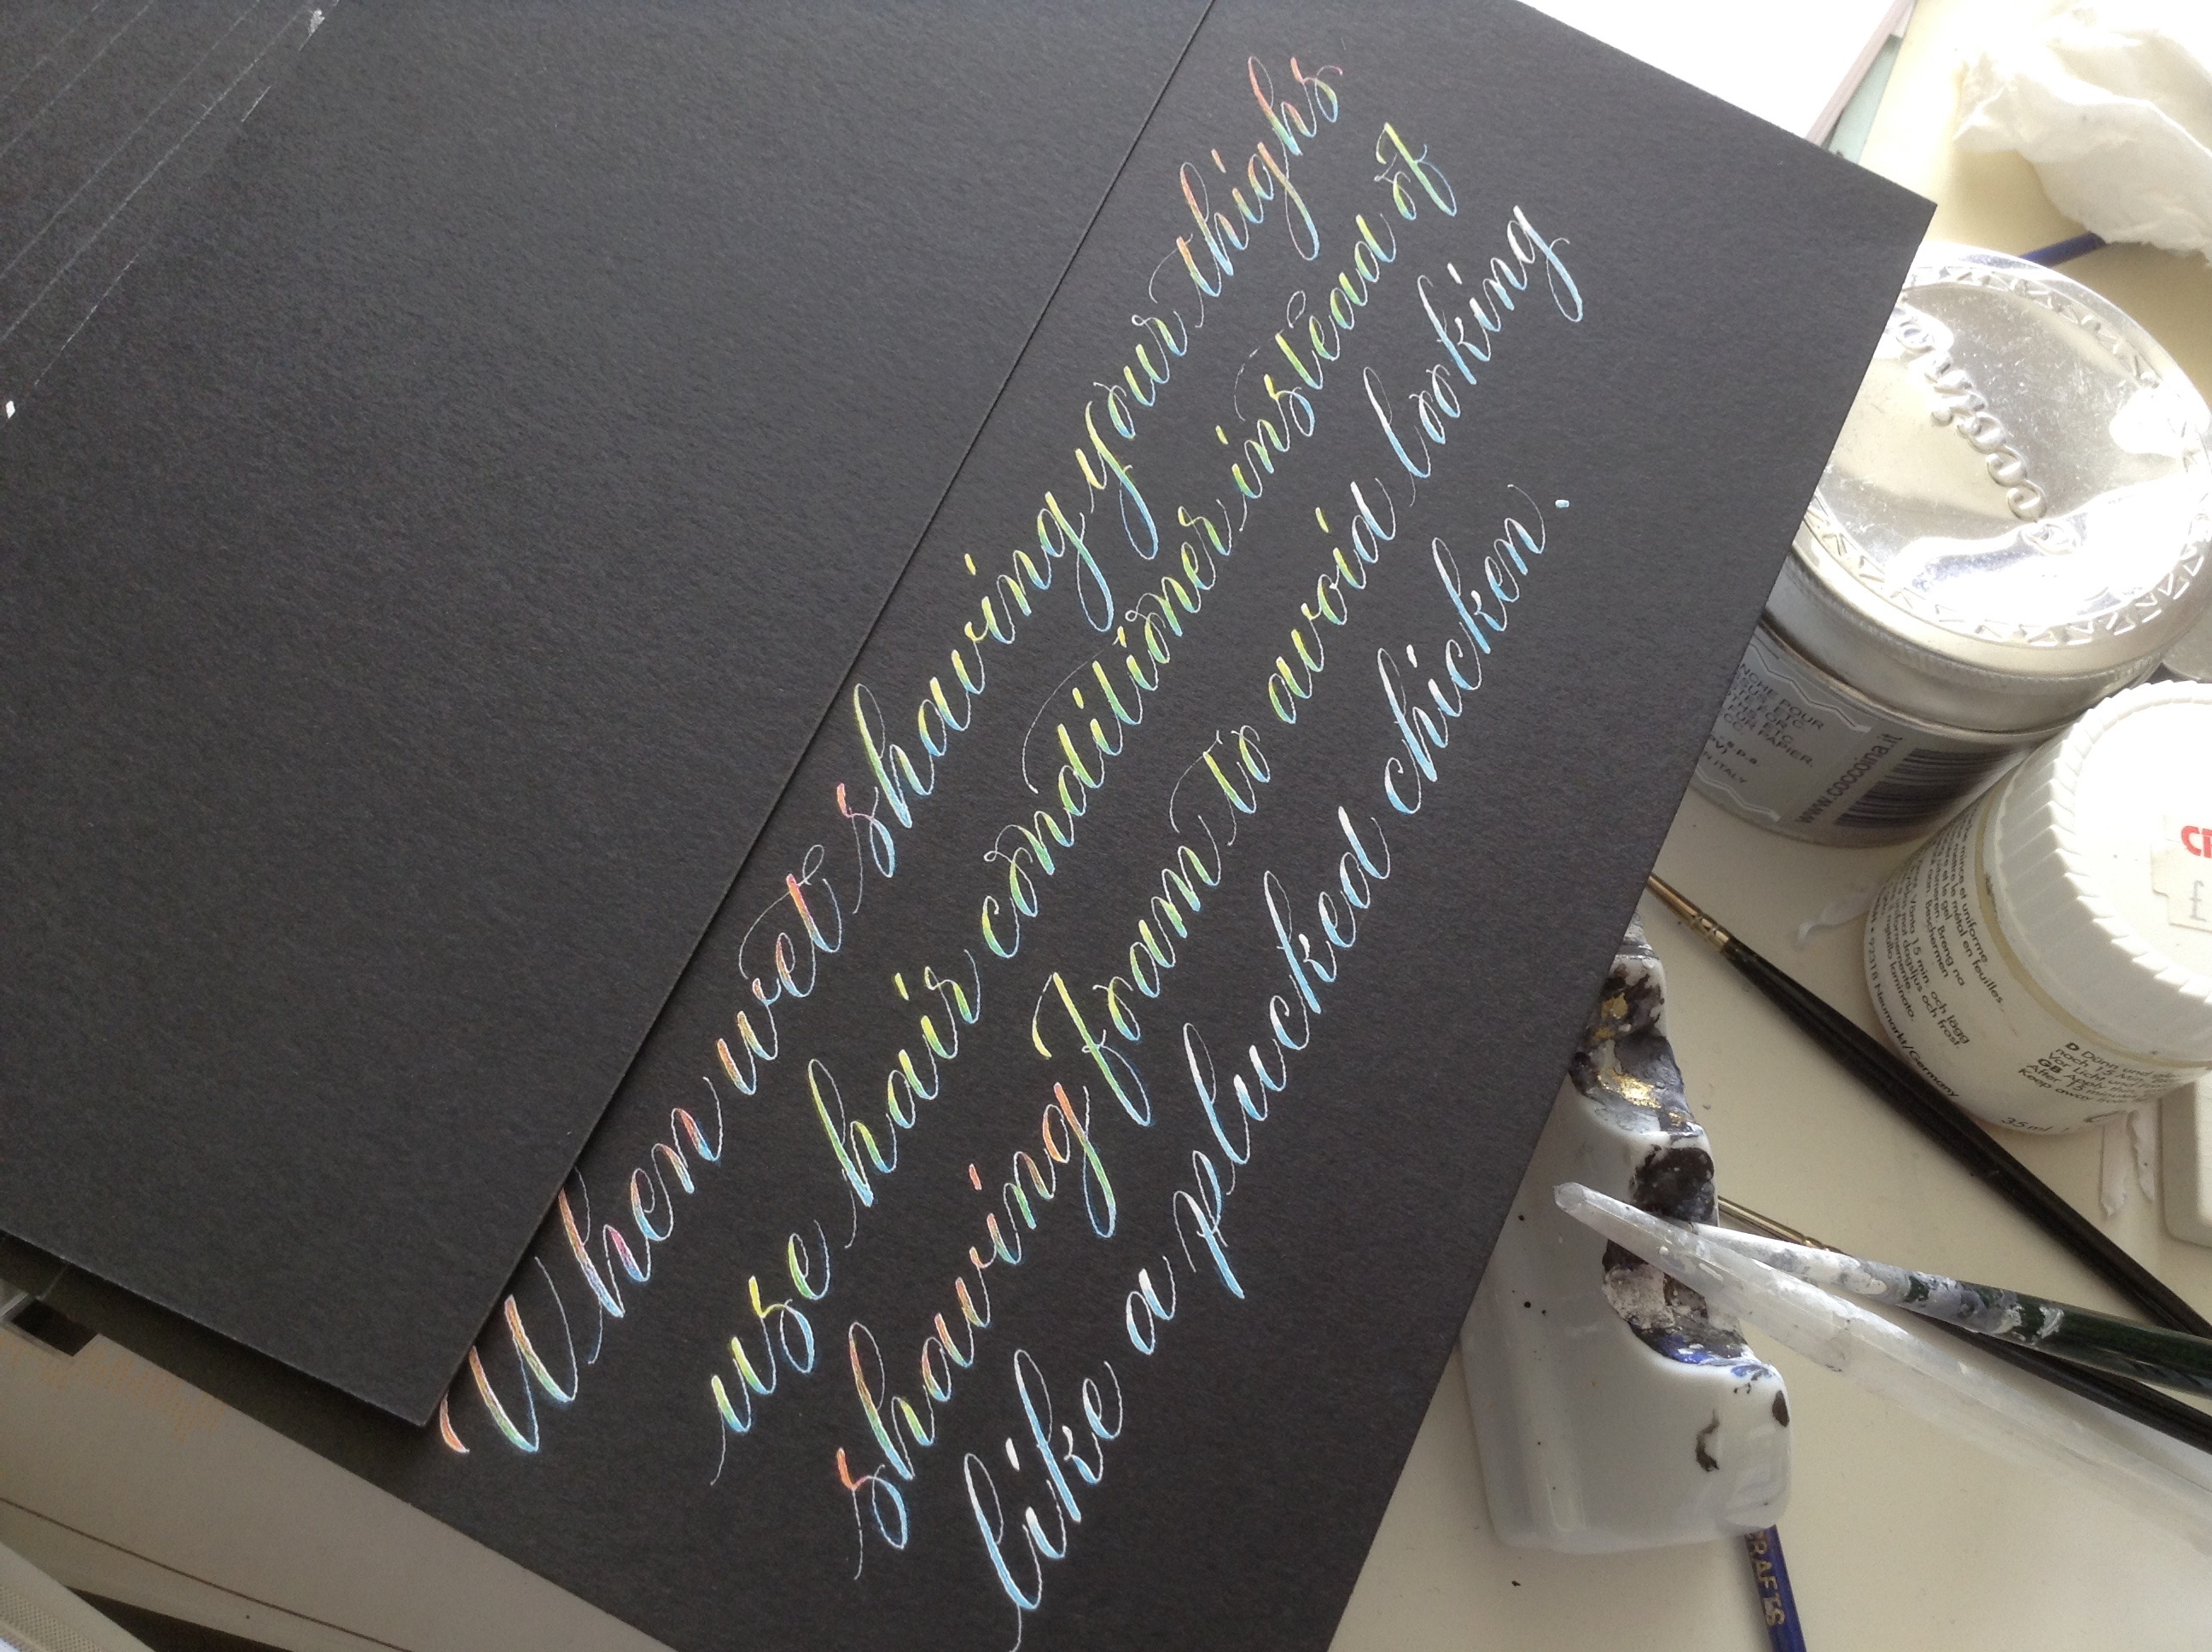 When wet shaving your thighs
use hair conditioner instead of
shaving foam to avoid looking
like a plucked chicken.
Coccoina
www.coccoina.it
35 ml
RAFTS